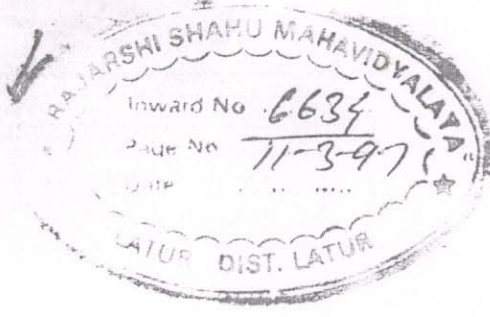 RAJARSHI SHAHU MAHAVIDYALAYA
Inward No 6634
Page No 11-3-97
Date
LATUR DIST. LATUR